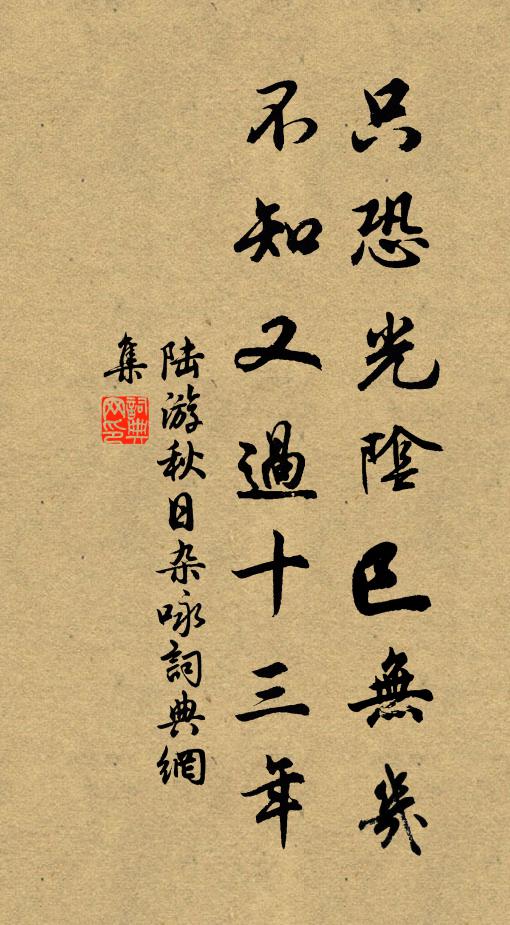 只恐光陰已無幾
不知又過十三年
陆游秋日杂咏詞典網
集
詞典网印